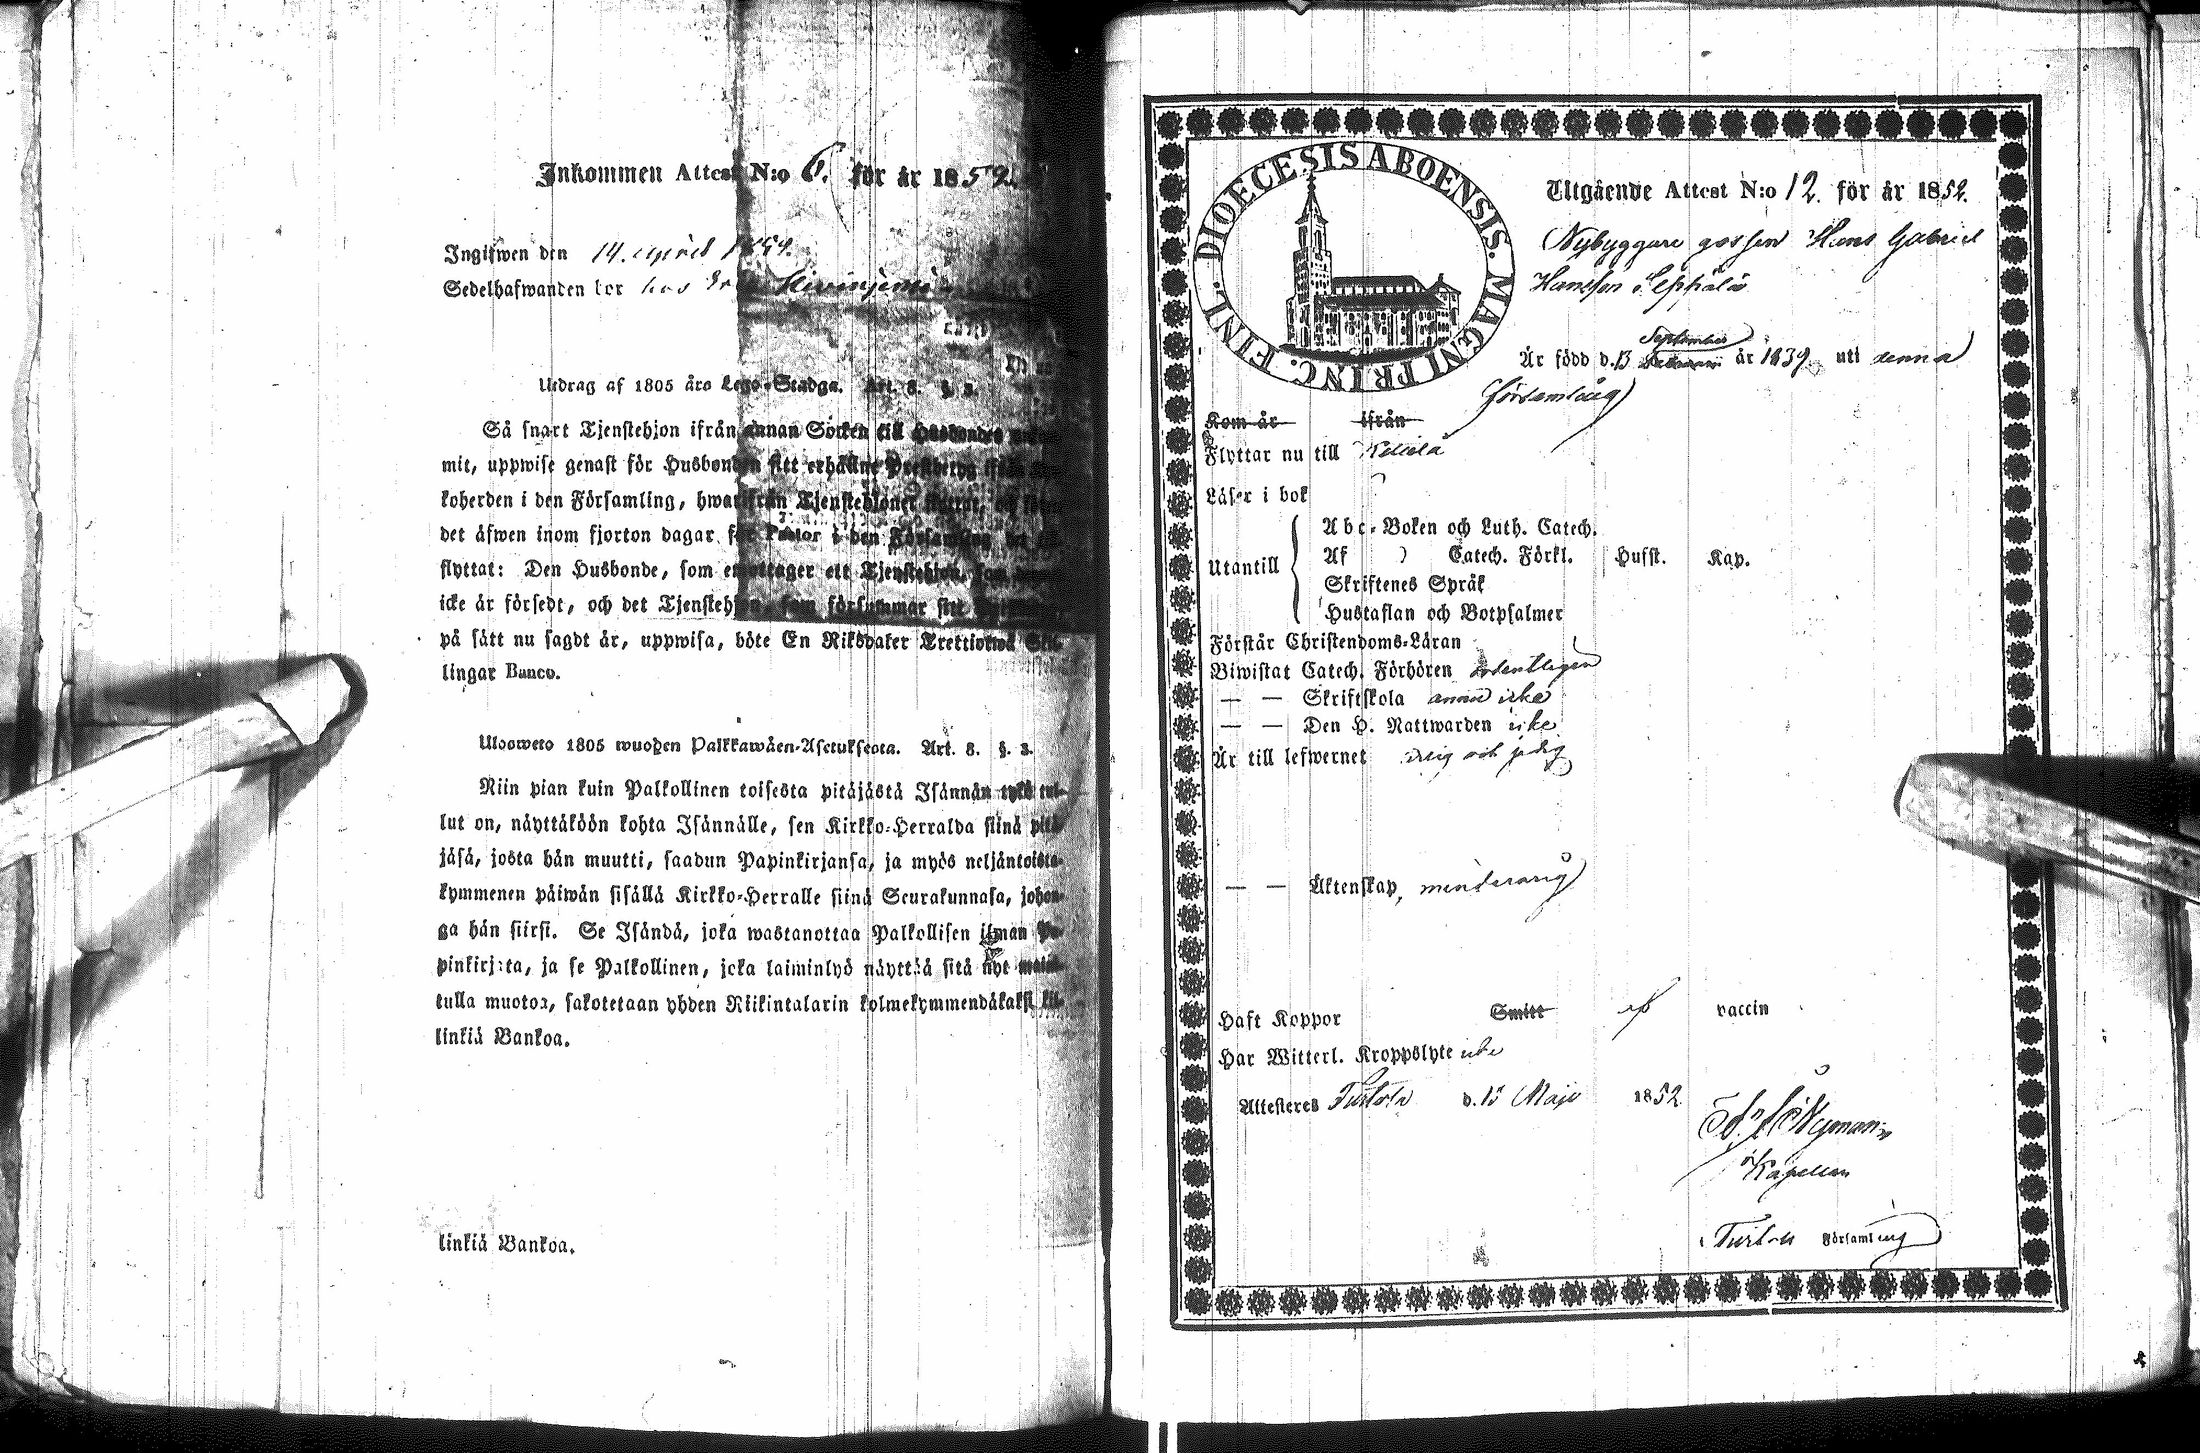 Inkommen Attest N:o 6. för år 1852.
Ingifwen den 14. april
Sedelhafwanden bor hos
Utdrag af 1805 års Lego-Stadga. Art. 8. §. 3.
Så snart Tjenstehjon ifrån annan Socken till Husbondes
mit, uppwise genast för Husbonden sitt erhållne Prestbetyg
koherden i den Församling, hwarifrån Tjenstehjonet
det äfwen inom fjorton dagar för Pastor i den Församling
flyttat: Den Husbonde, som emottager ett Tjenstehjon, som
icke är försedt, och det Tjenstehjon, som försummar sitt
på sätt nu sagdt är, uppwisa, böte En Riksdaler Trettiotwå Skil-
lingar Banco.
Uloosweto 1805 wuoden Palkkawäen-Asetuksesta. Art. 8. §. 3.
Niin pian kuin Palkollinen toisesta pitäjästä Isännän tykö tul-
lut on, näyttäköön kohta Isännälle, sen Kirkko-Herralda siinä pitä-
jäsä, josta hän muutti, saadun Papinkirjansa, ja myös neljäntoista-
kymmenen päiwän sisällä Kirkko-Herralle siinä Seurakunnasa, johon-
ga hän siirsi. Se Isändä, joka wastanottaa Palkollisen ilman Pa-
pinkirjata, ja se Palkollinen, joka laiminlyö näyttää sitä nyt mainit-
tulla muotoa, sakotetaan yhden Riikintalarin kolmekymmendäkaksi kil-
linkiä Bankoa.
linkiä Bankoa.
DIOECESIS ABOENSIS. MAGNI PRINC. FINL.
Utgående Attest N:o 12. för år 1852.
Nybyggare gossen Hans Gabriel
Hansson Seppälä
September
Är född d. 13 år 1839 uti denna
församling
Kom år ifrån
Flyttar nu till
Läser i bok
Utantill
Abc-Boken och Luth. Catech.
Af Catech. Förkl. Hufst. Kap.
Skriftenes Språk
Hustaflan och Botpsalmer
Förstår Christendoms-Läran
Biwistat Catech. Förhören ordentligen
— — Skriftskola ännu icke
— — Den H. Nattwarden icke
Är till lefwernet ärlig och
— — Äktenskap, minderårig
Haft Koppor Smitt af vaccin
Har Witterl. Kroppslyte icke
Attesteres Turtola d. 15 Maji 1852
Nyman
Kapellan
i Turtola Församling